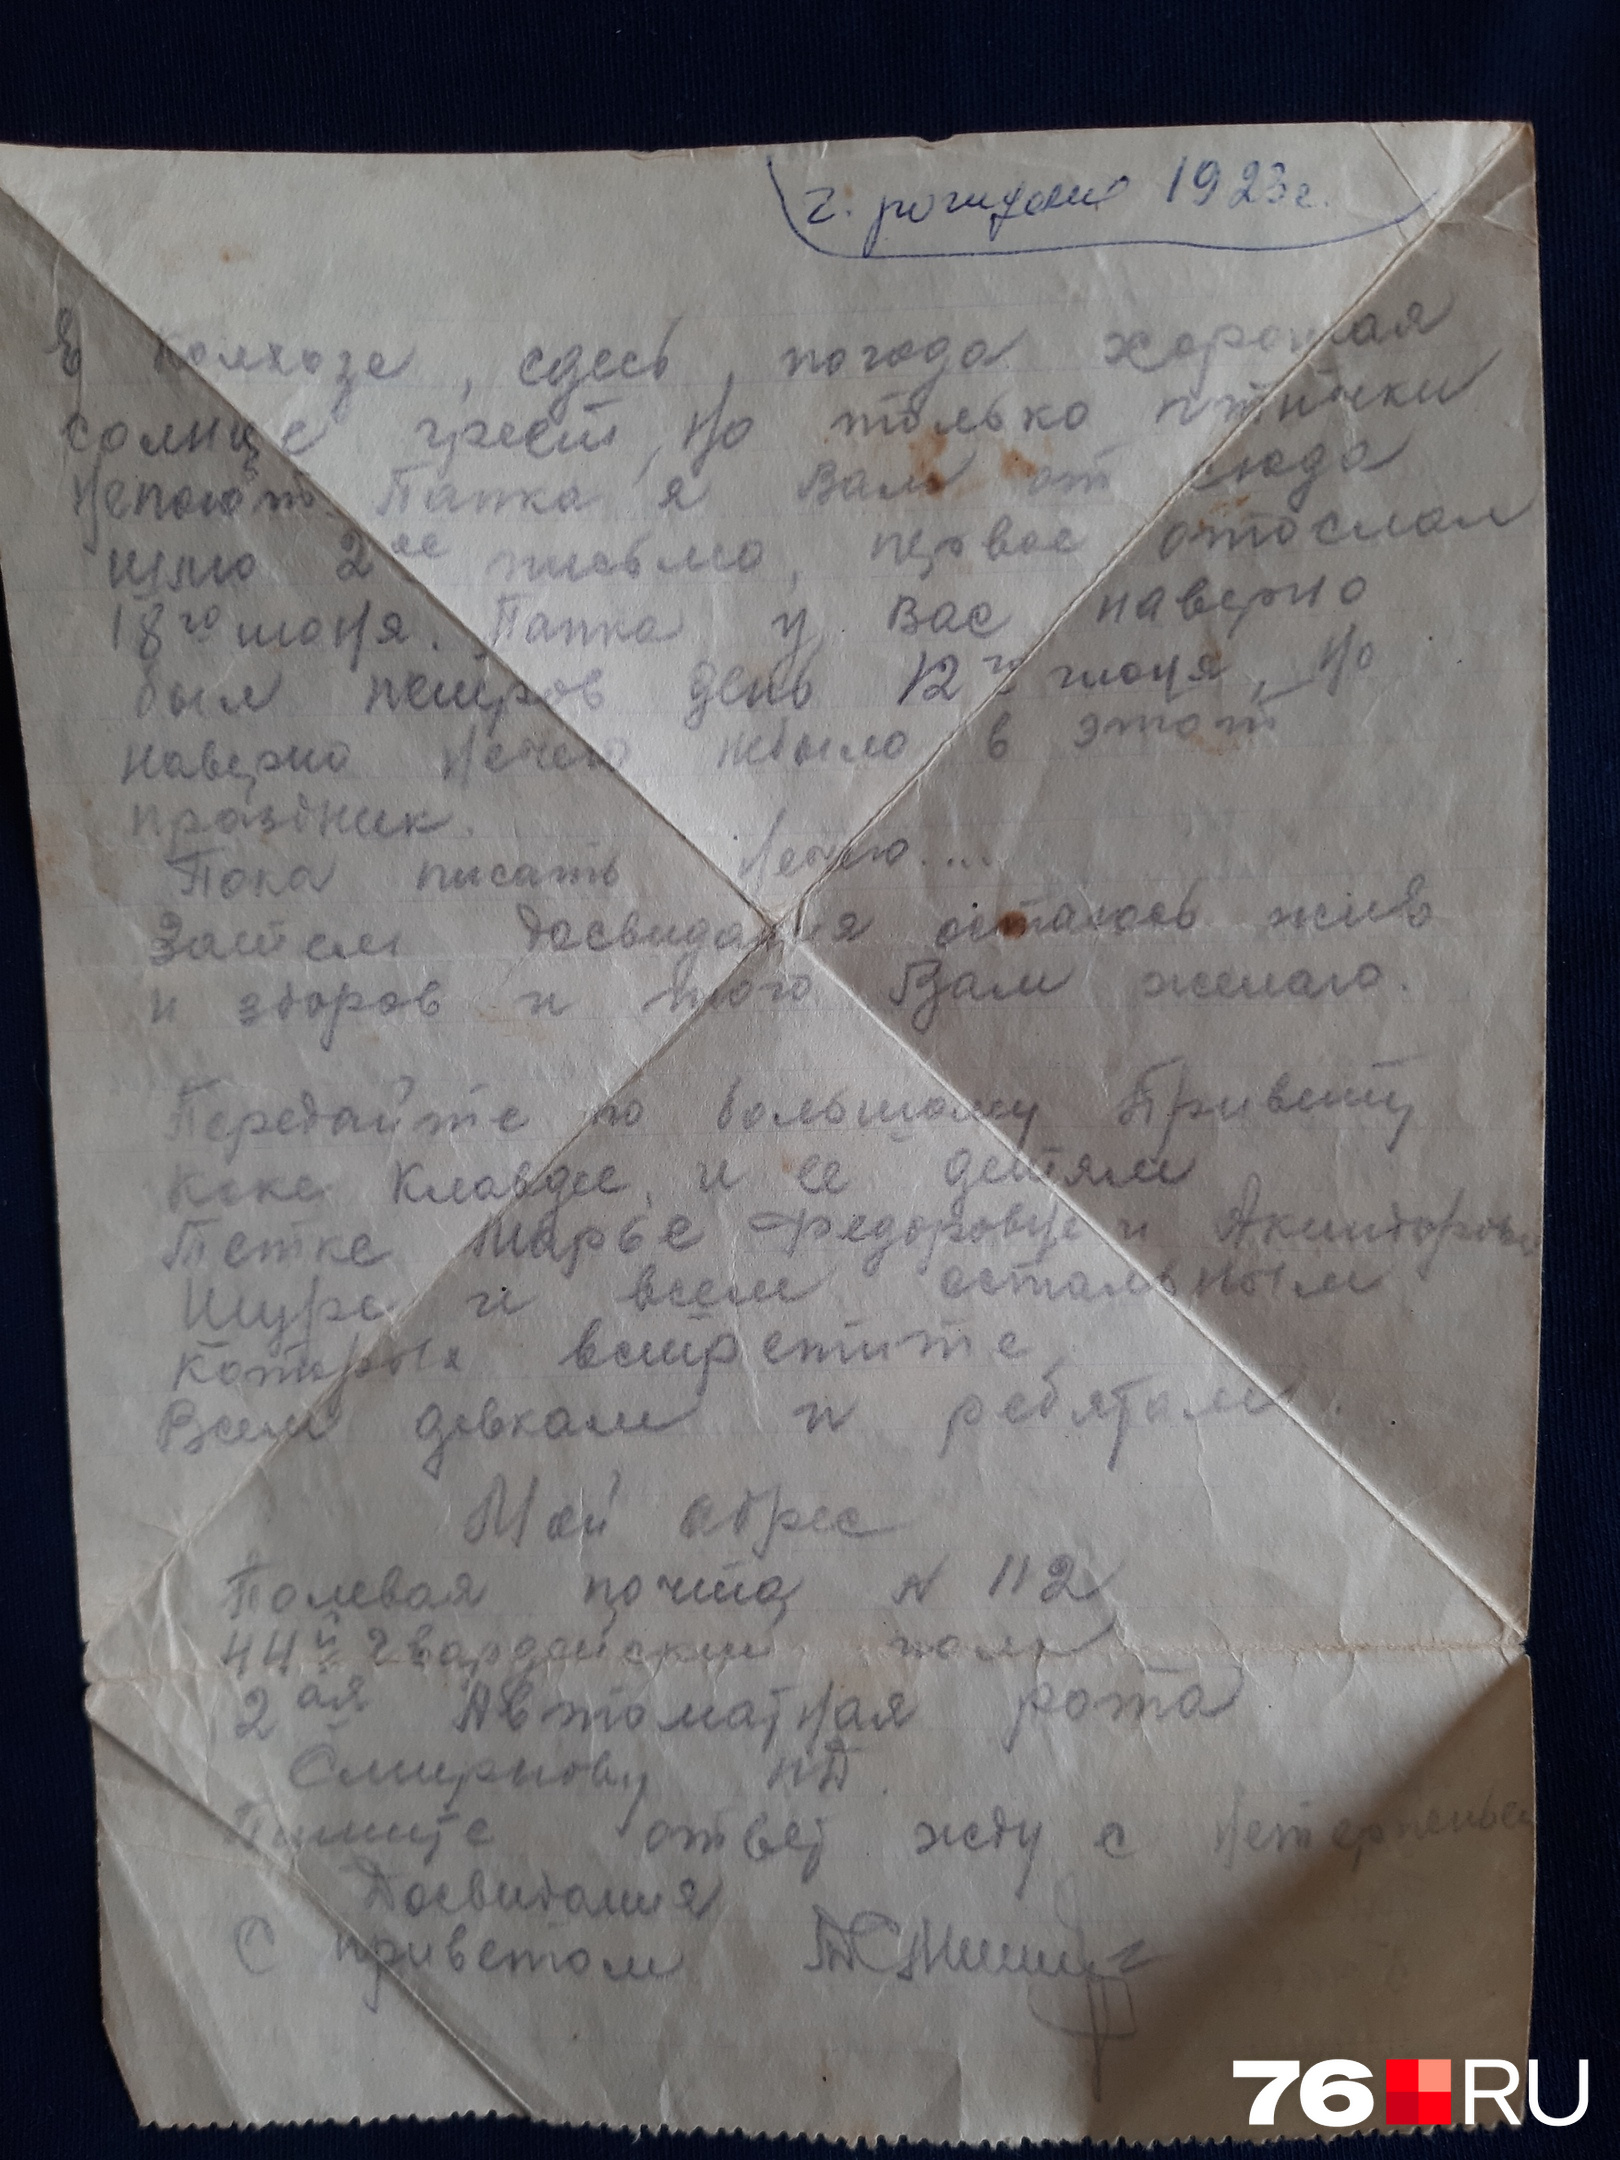 г. рождения 1923 г.
в колхозе, сдесь, погода хорошая
солнце греет, но только птички
непоют. Папка я Вам от сюда
шлю 2ое письмо, первое отослал
18го июня. Папка у Вас наверно
был петров день 12го июля, но
наверно нечего небыло в этот
праздник.
Пока писать нечего....
Затем досвидания остаюсь жив
и здоров и того Вам желаю.
Передайте по большому Привету
Коке Клавдее, и ее детям
Тетке Марье Федоровне и
Шуре и всем остальным
которых встретите,
Всем девкам и ребятам.
Мой адрес
Полевая почта N 112
44й Гвардейский полк
2ая Автоматная рота
Смирнову
Пишите ответ жду с нетерпеньем
Досвидания
С приветом
76 RU